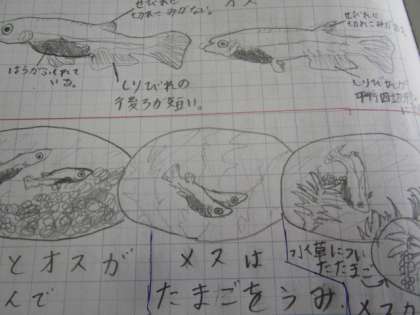 せびれに
切れこみがない。
オス
せびれに
切れこみがある
はらがふくれて
いる。
しりびれの
後ろが短い。
しりびれが
平行四辺形
とオスが
んで
メスは
たまごをうみ、
水草につい
たたまご
メスが